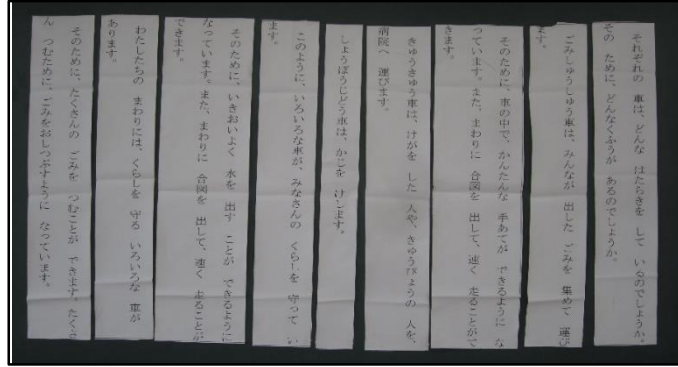 それぞれの 車は、どんな はたらきを して いるのでしょうか。
その ために、どんなくふうが あるのでしょうか。
ごみしゅうしゅう車は、みんなが 出した ごみを 集めて 運び
ます。
そのために、車の中で、かんたんな 手あてが できるように な
っています。また、まわりに 合図を 出して、速く 走ることがで
きます。
きゅうきゅう車は、けがを した 人や、きゅうびょうの 人を、
病院へ 運びます。
しょうぼうじどう車は、かじを けします。
このように、いろいろな車が、みなさんの くらしを 守って い
ます。
そのために、いきおいよく 水を 出す ことが できるように
なっています。また、まわりに 合図を 出して、速く 走ることが
できます。
わたしたちの まわりには、くらしを 守る いろいろな 車が
あります。
そのために、たくさんの ごみを つむことが できます。たくさ
ん つむために、ごみをおしつぶすように なっています。